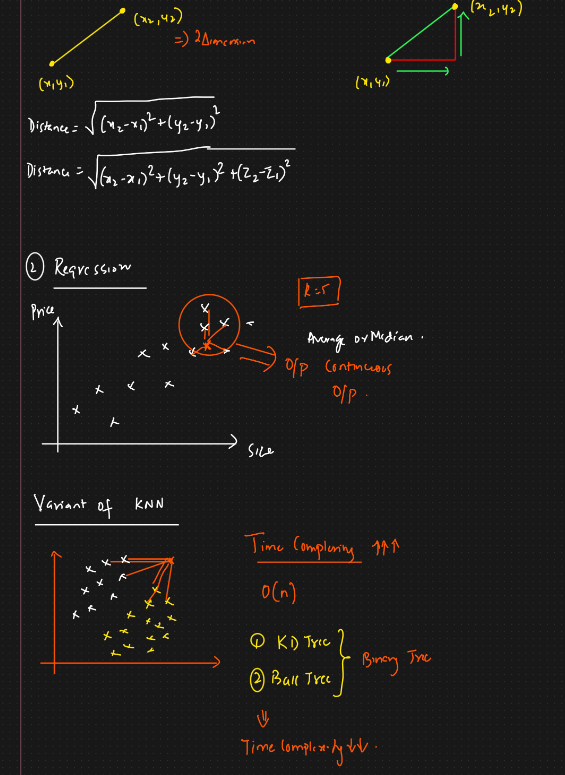 (x2, y2)
(x2, y2)
=) 2 Dimension
(x1, y1)
(x1, y1)
Distance = √(x2-x1)²+(y2-y1)²
Distance = √(x2-x1)²+(y2-y1)²+(z2-z1)²
② Regression
K=5
Price
Average or Median.
O/p Continuous
O/p.
Size
Variant of KNN
Time Complexity ↑↑↑
O(n)
① KD Tree
Binary Tree
② Ball Tree
⇓
Time Complexity ↓↓.